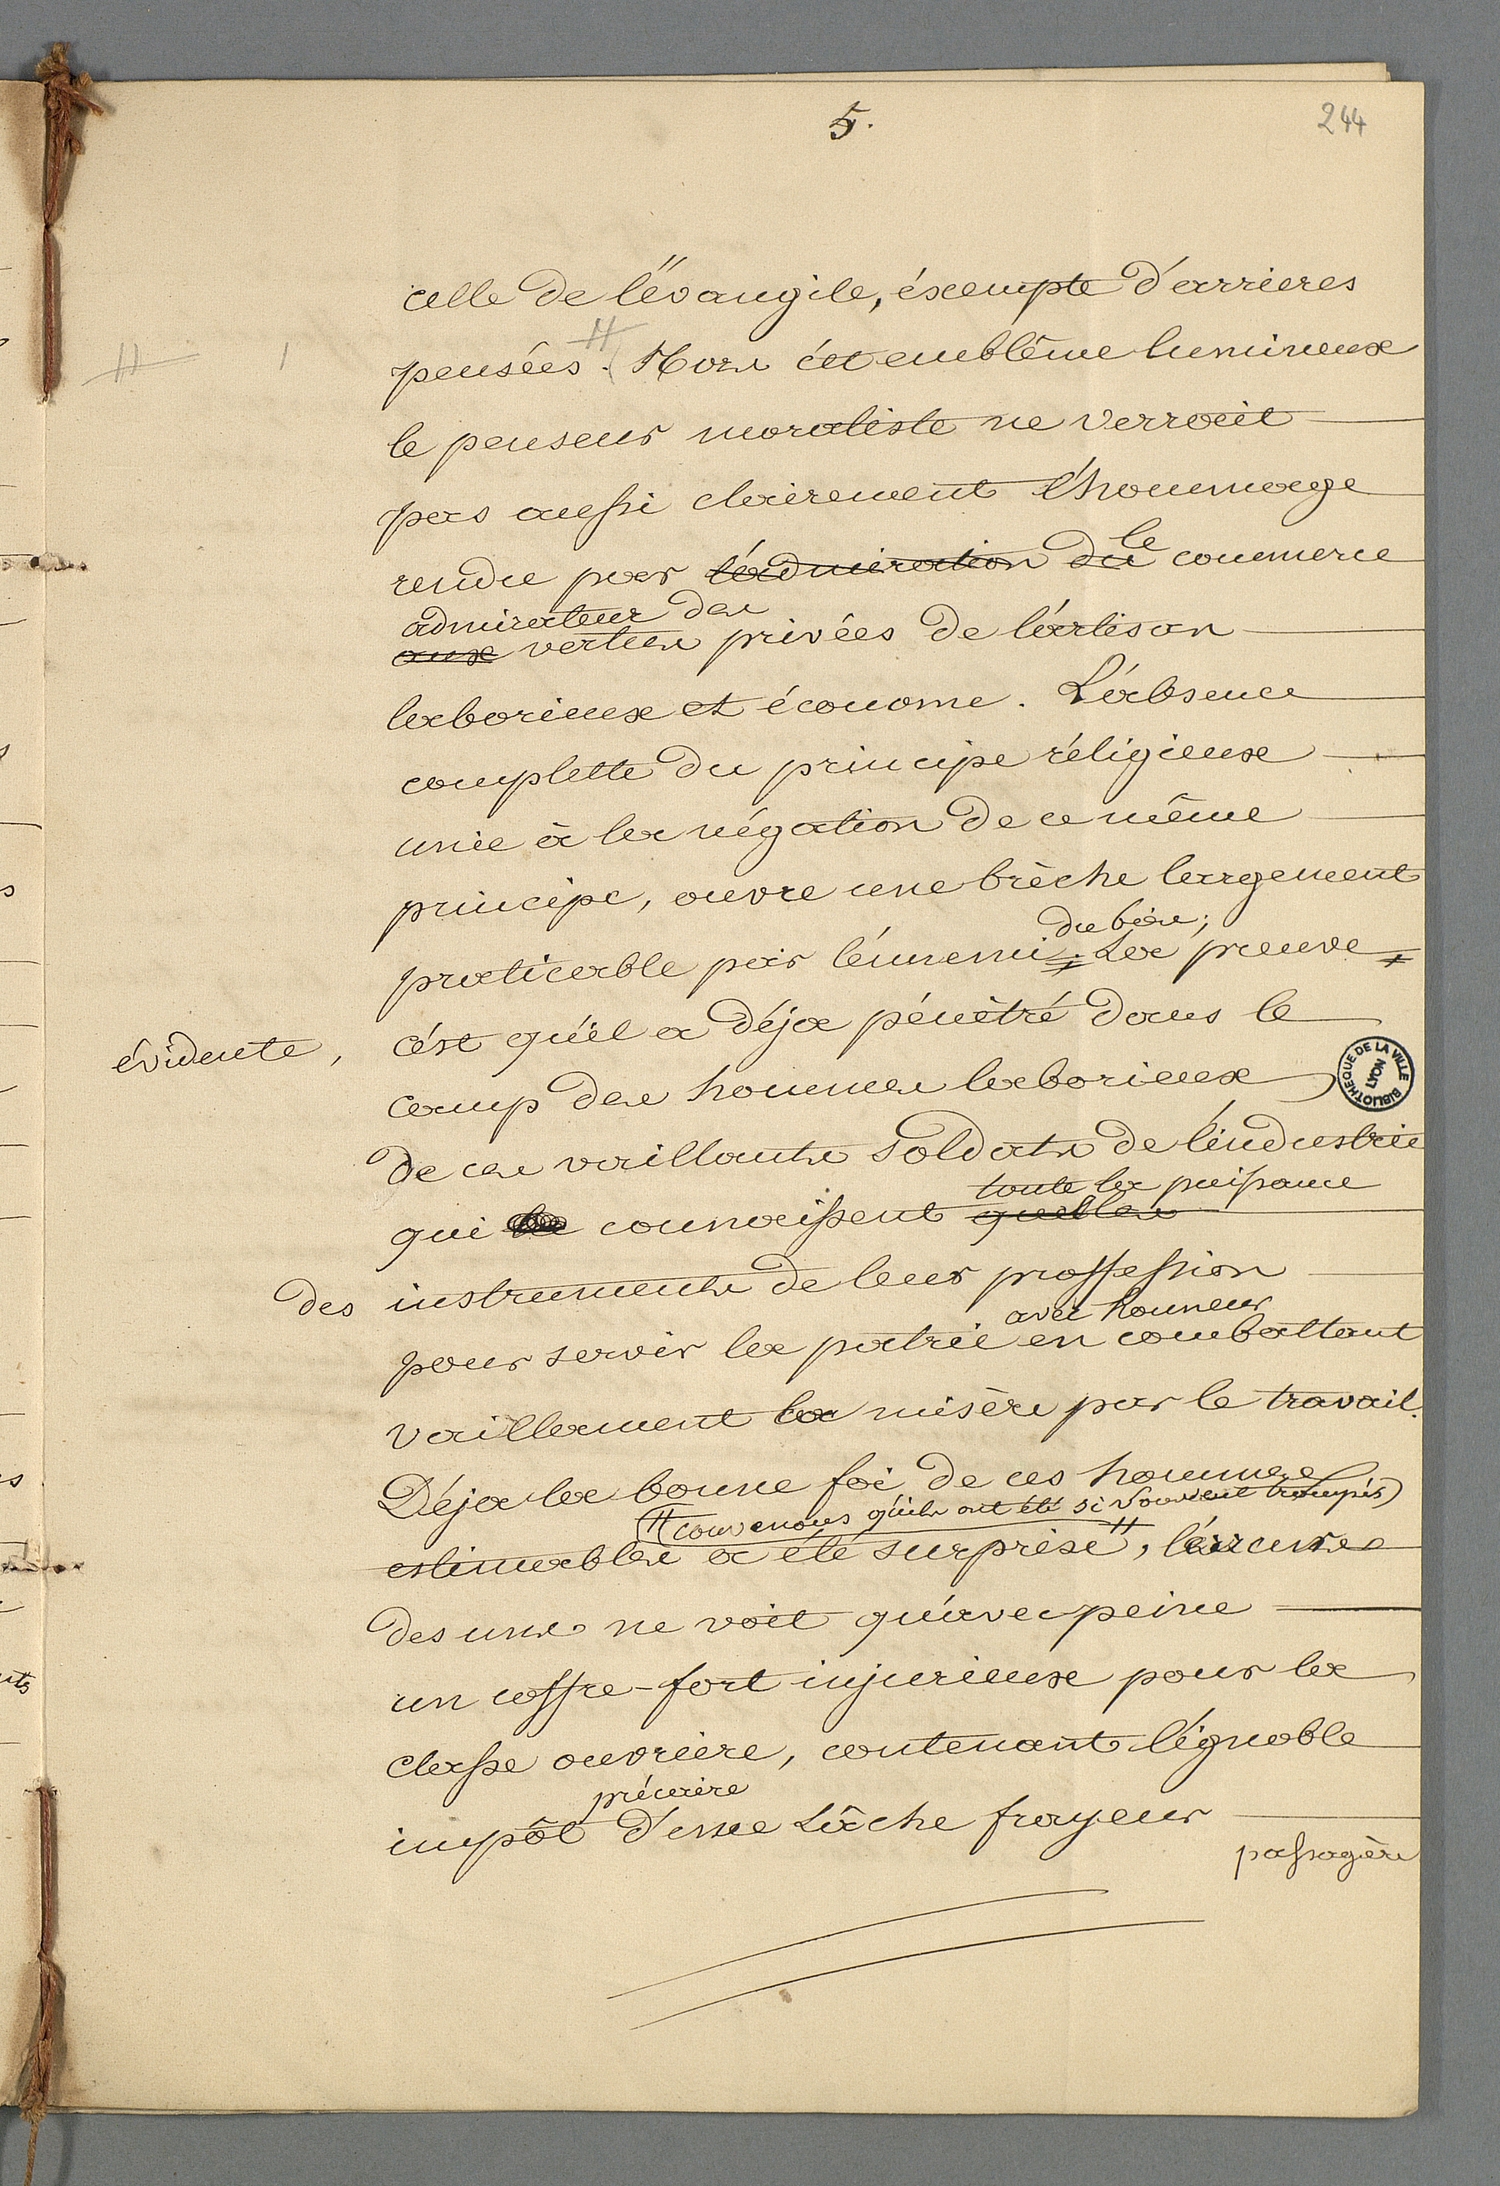 5.
244
celle de l'évangile, éxempte d'arrieres
pensées. Hors cet emblême lumineux
le penseur moraliste ne verroit
pas aussi clairement l'hommage
le
rendu par l'admiration du commerce
admirateur des
aux vertus privées de l'artisan
laborieux et économe. L'absence
complette du principe réligieux
unie à la négation de ce même
principe, ouvre une brèche largement
du bien;
praticable par l'ennemi. La preuve
évidente, c'est qu'il a déja pénétré dans le
camp des hommes laborieux
de ces vaillants soldats de l'industrie
toute la puissance
qui connaissent quelles
des instruments de leur proffession
avec honneur
pour servir la patrie en combattant
vaillament la misère par le travail.
Déja la bonne foi de ces hommes
(convenons qu'ils ont été si souvent trompés)
estimables a été surprise, l'erreur
des uns ne voit qu'avec peine
un coffre-fort injurieux pour la
classe ouvriere, contenant l'ignoble
précaire
impôt d'une lâche frayeur
passagère
BIBLIOTHEQUE DE LA VILLE
LYON